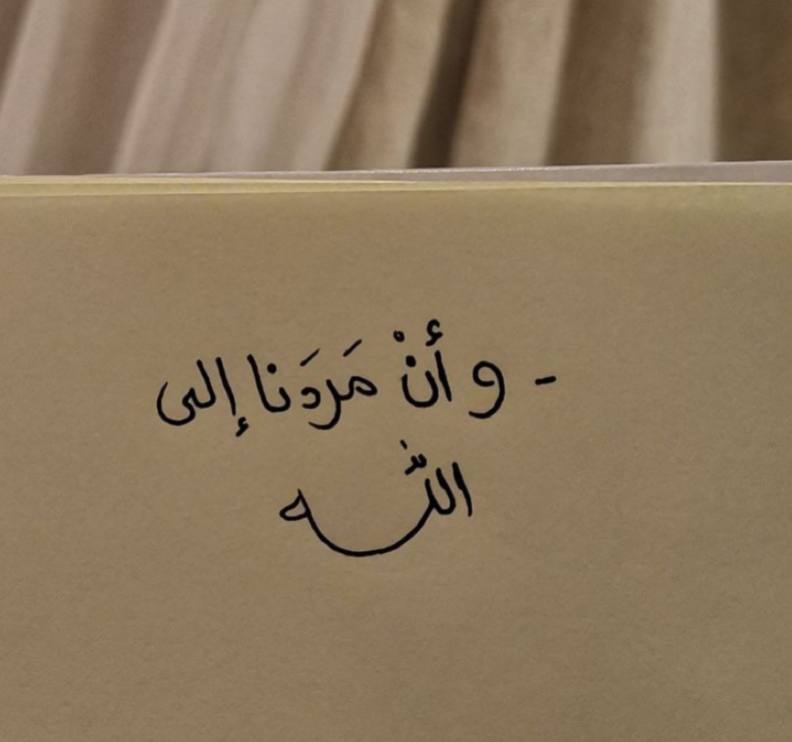 - و أنْ مَردَنا إلى
اللّٰه